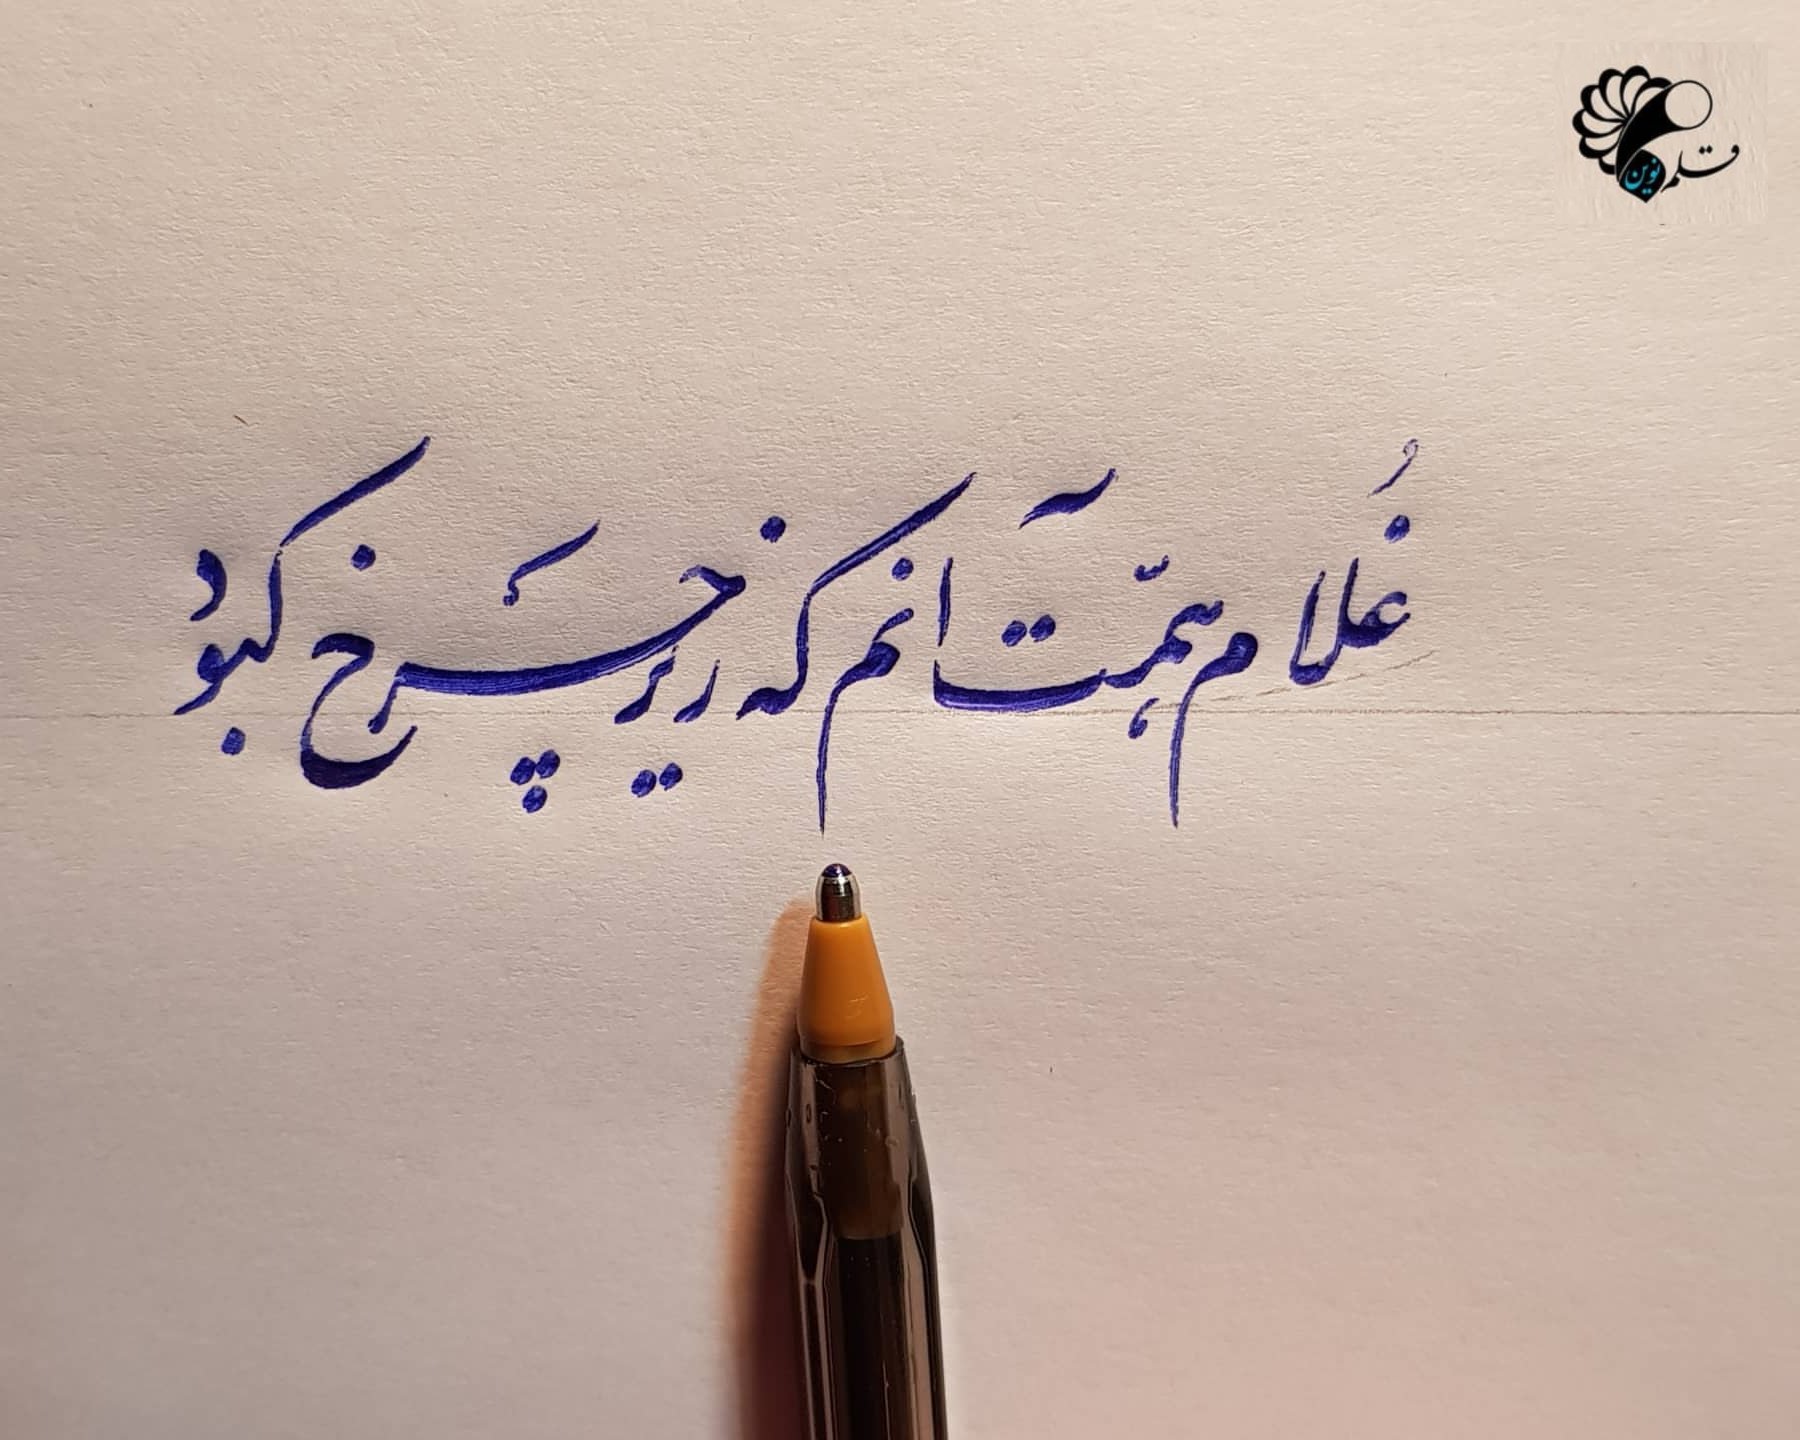 قلم نوین
غُلام همّت آنم که زیر چَرخ کبود